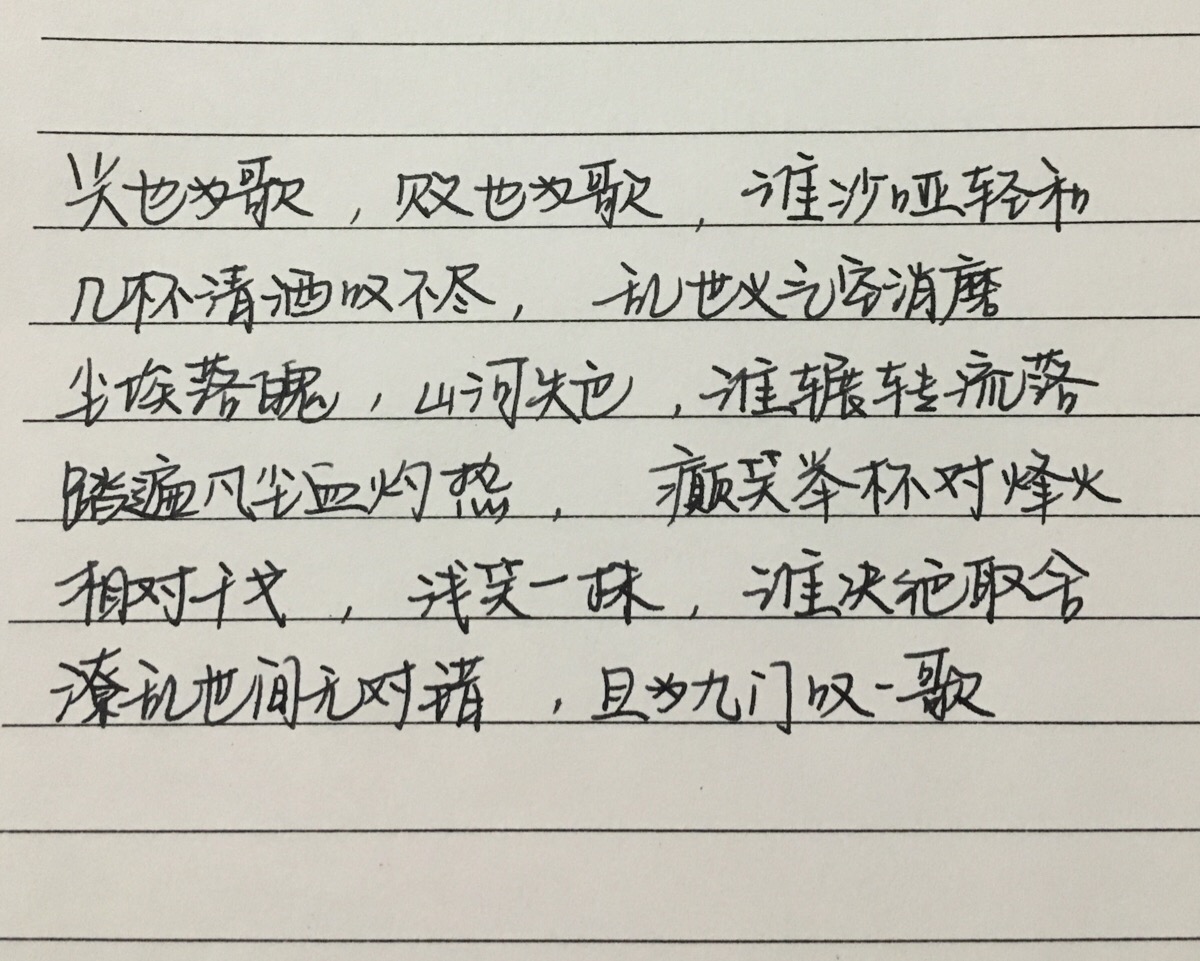 兴也为歌，败也为歌，谁沙哑轻和
几杯清酒叹不尽，乱世义气空消磨
尘埃落魄，山河失色，谁辗转流落
踏遍凡尘血灼热，癫笑举杯对烽火
相对干戈，浅笑一抹，谁决绝取舍
潦乱世间无对错，且为九门叹一歌